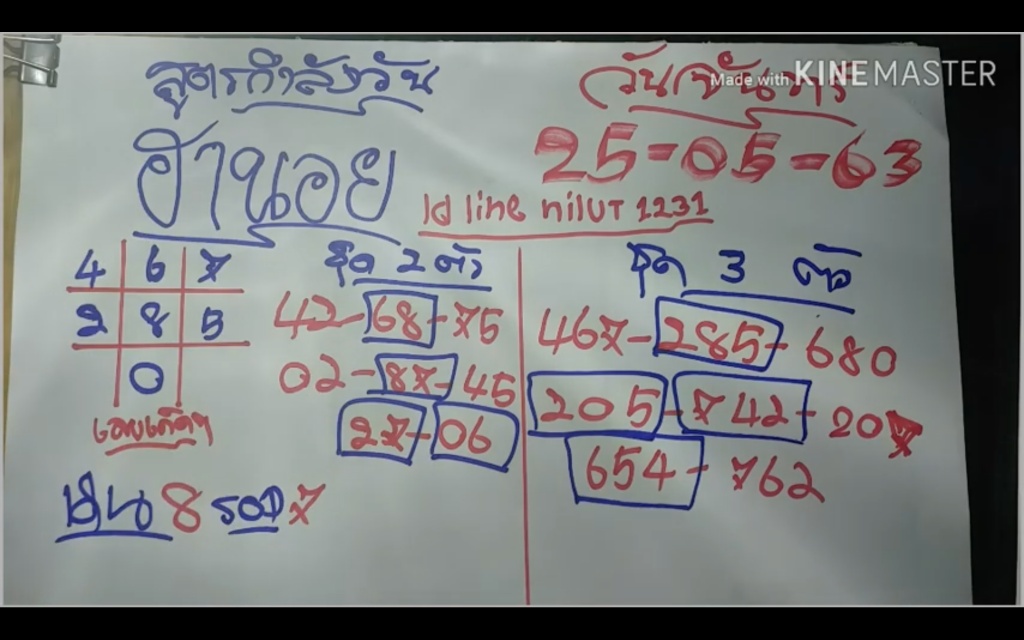 สูตรกำลังวัน
วันจันทร์
Made with KINEMASTER
ฮานอย
25-05-63
Id line nilut 1231
4 6 7
2 8 5
0
เลขเด็ดๆ
ชุด 2 ตัว
42-68-75
02-87-45
27-06
ชุด 3 ตัว
467-285-680
205-742-207
654-762
เน้น 8 รอง 7